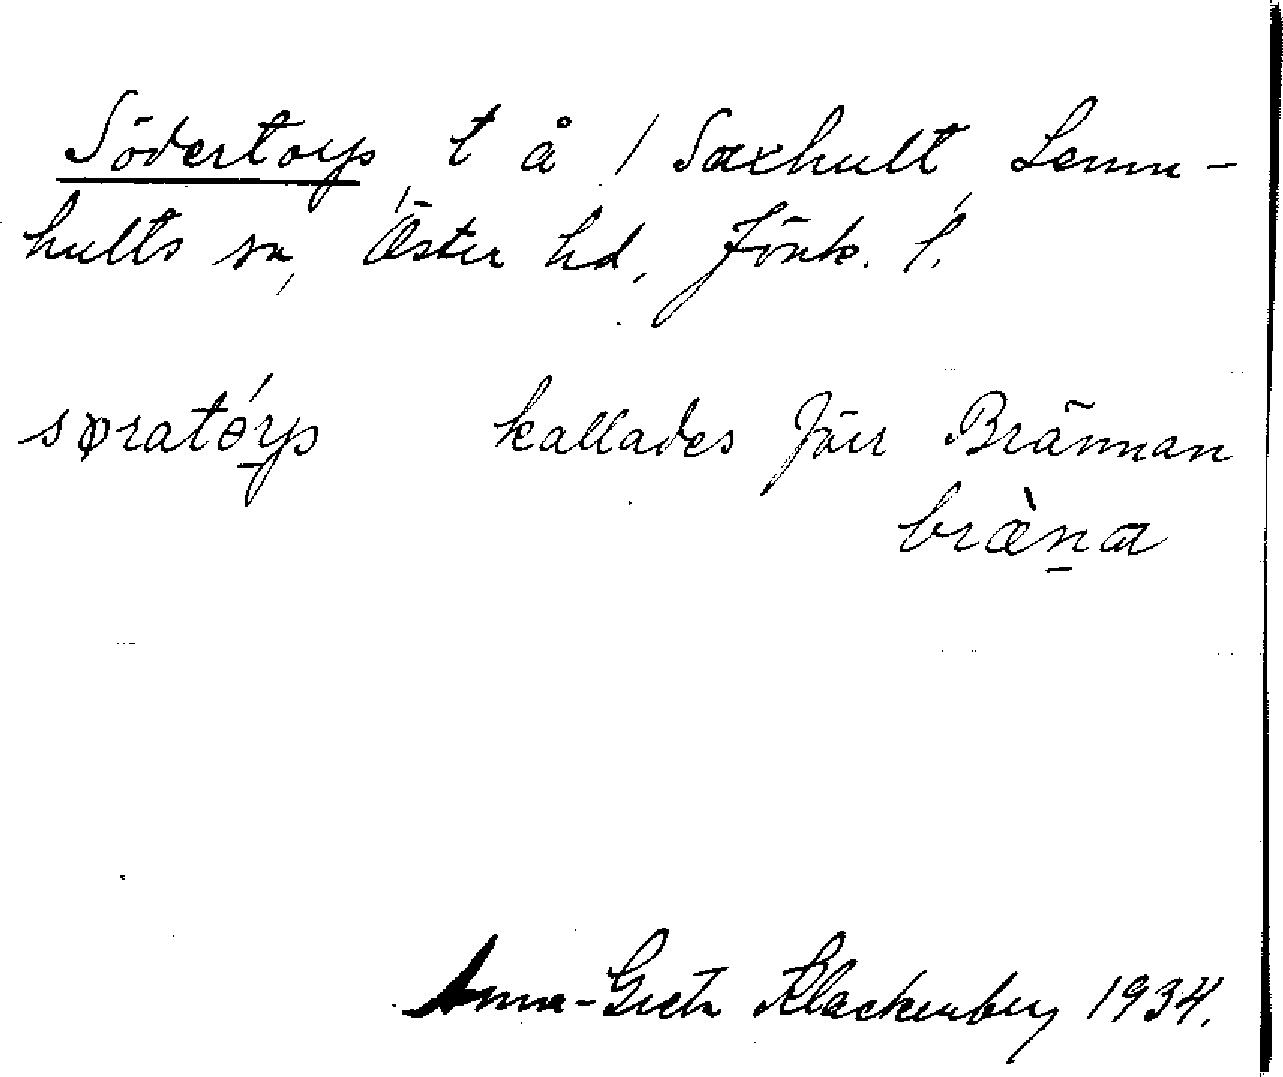 Södertorp, t å / Saxhult, Lemn-
hults sn, Öster hd, Jönk. l.
søratǿrp kallades förr Brännan
bræ̀na
Anna-Greta Klackenberg 1934.